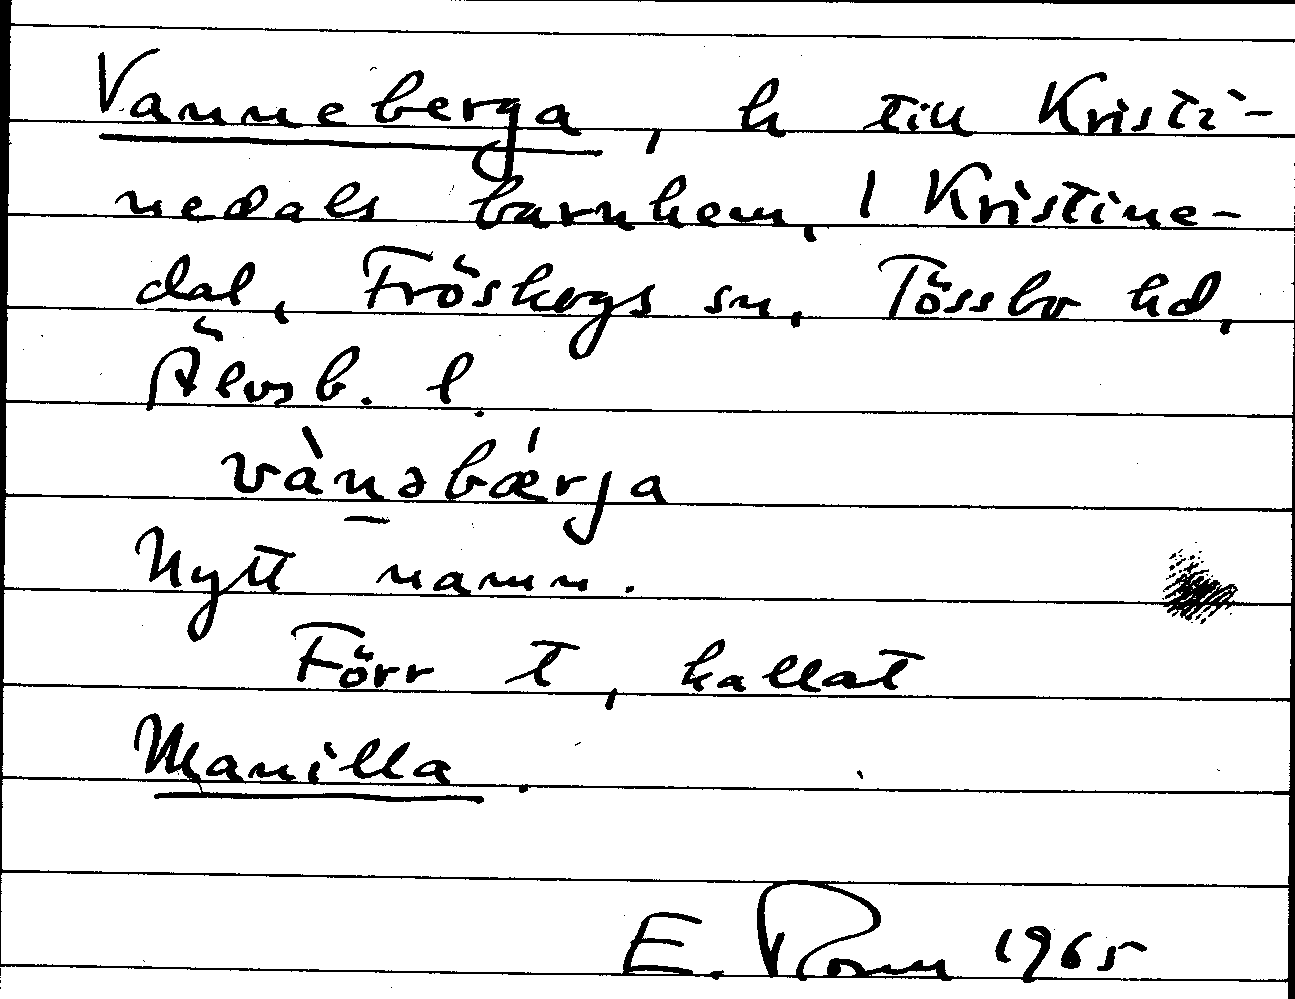 Vanneberga, h till Kristi-
nedals barnhem, 1 Kristine-
dal, Fröskogs sn, Tössbo hd,
Älvsb. l.
vàn̲əbǽrja
Nytt namn.
Förr t, kallat
Manilla.
E. 1965